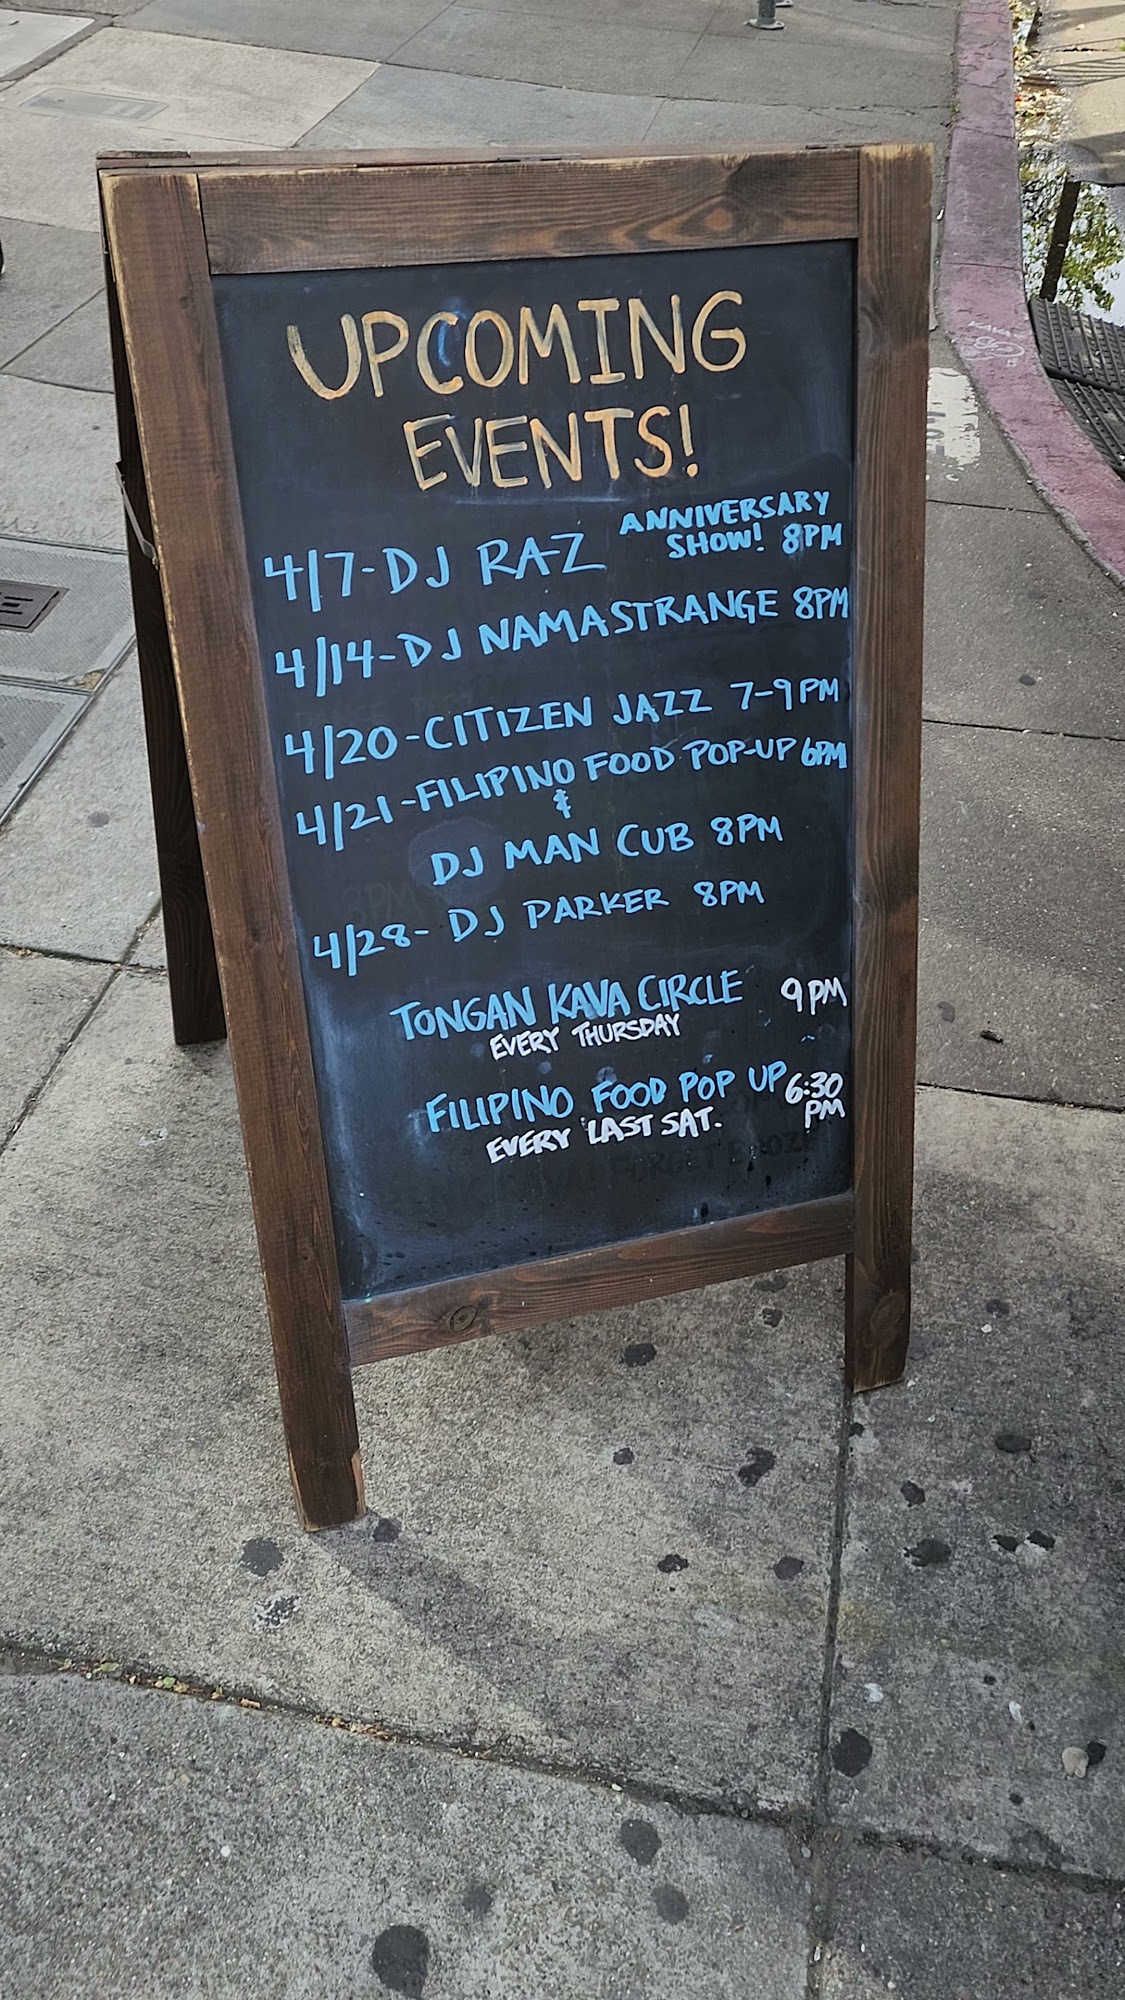 UPCOMING
EVENTS!
4/7-DJ RA-Z ANNIVERSARY
SHOW! 8PM
4/14-DJ NAMASTRANGE 8PM
4/20-CITIZEN JAZZ 7-9PM
4/21-FILIPINO FOOD POP-UP 6PM
&
DJ MAN CUB 8PM
4/28- DJ PARKER 8PM
TONGAN KAVA CIRCLE 9PM
EVERY THURSDAY
FILIPINO FOOD POP UP 6:30
PM
EVERY LAST SAT.